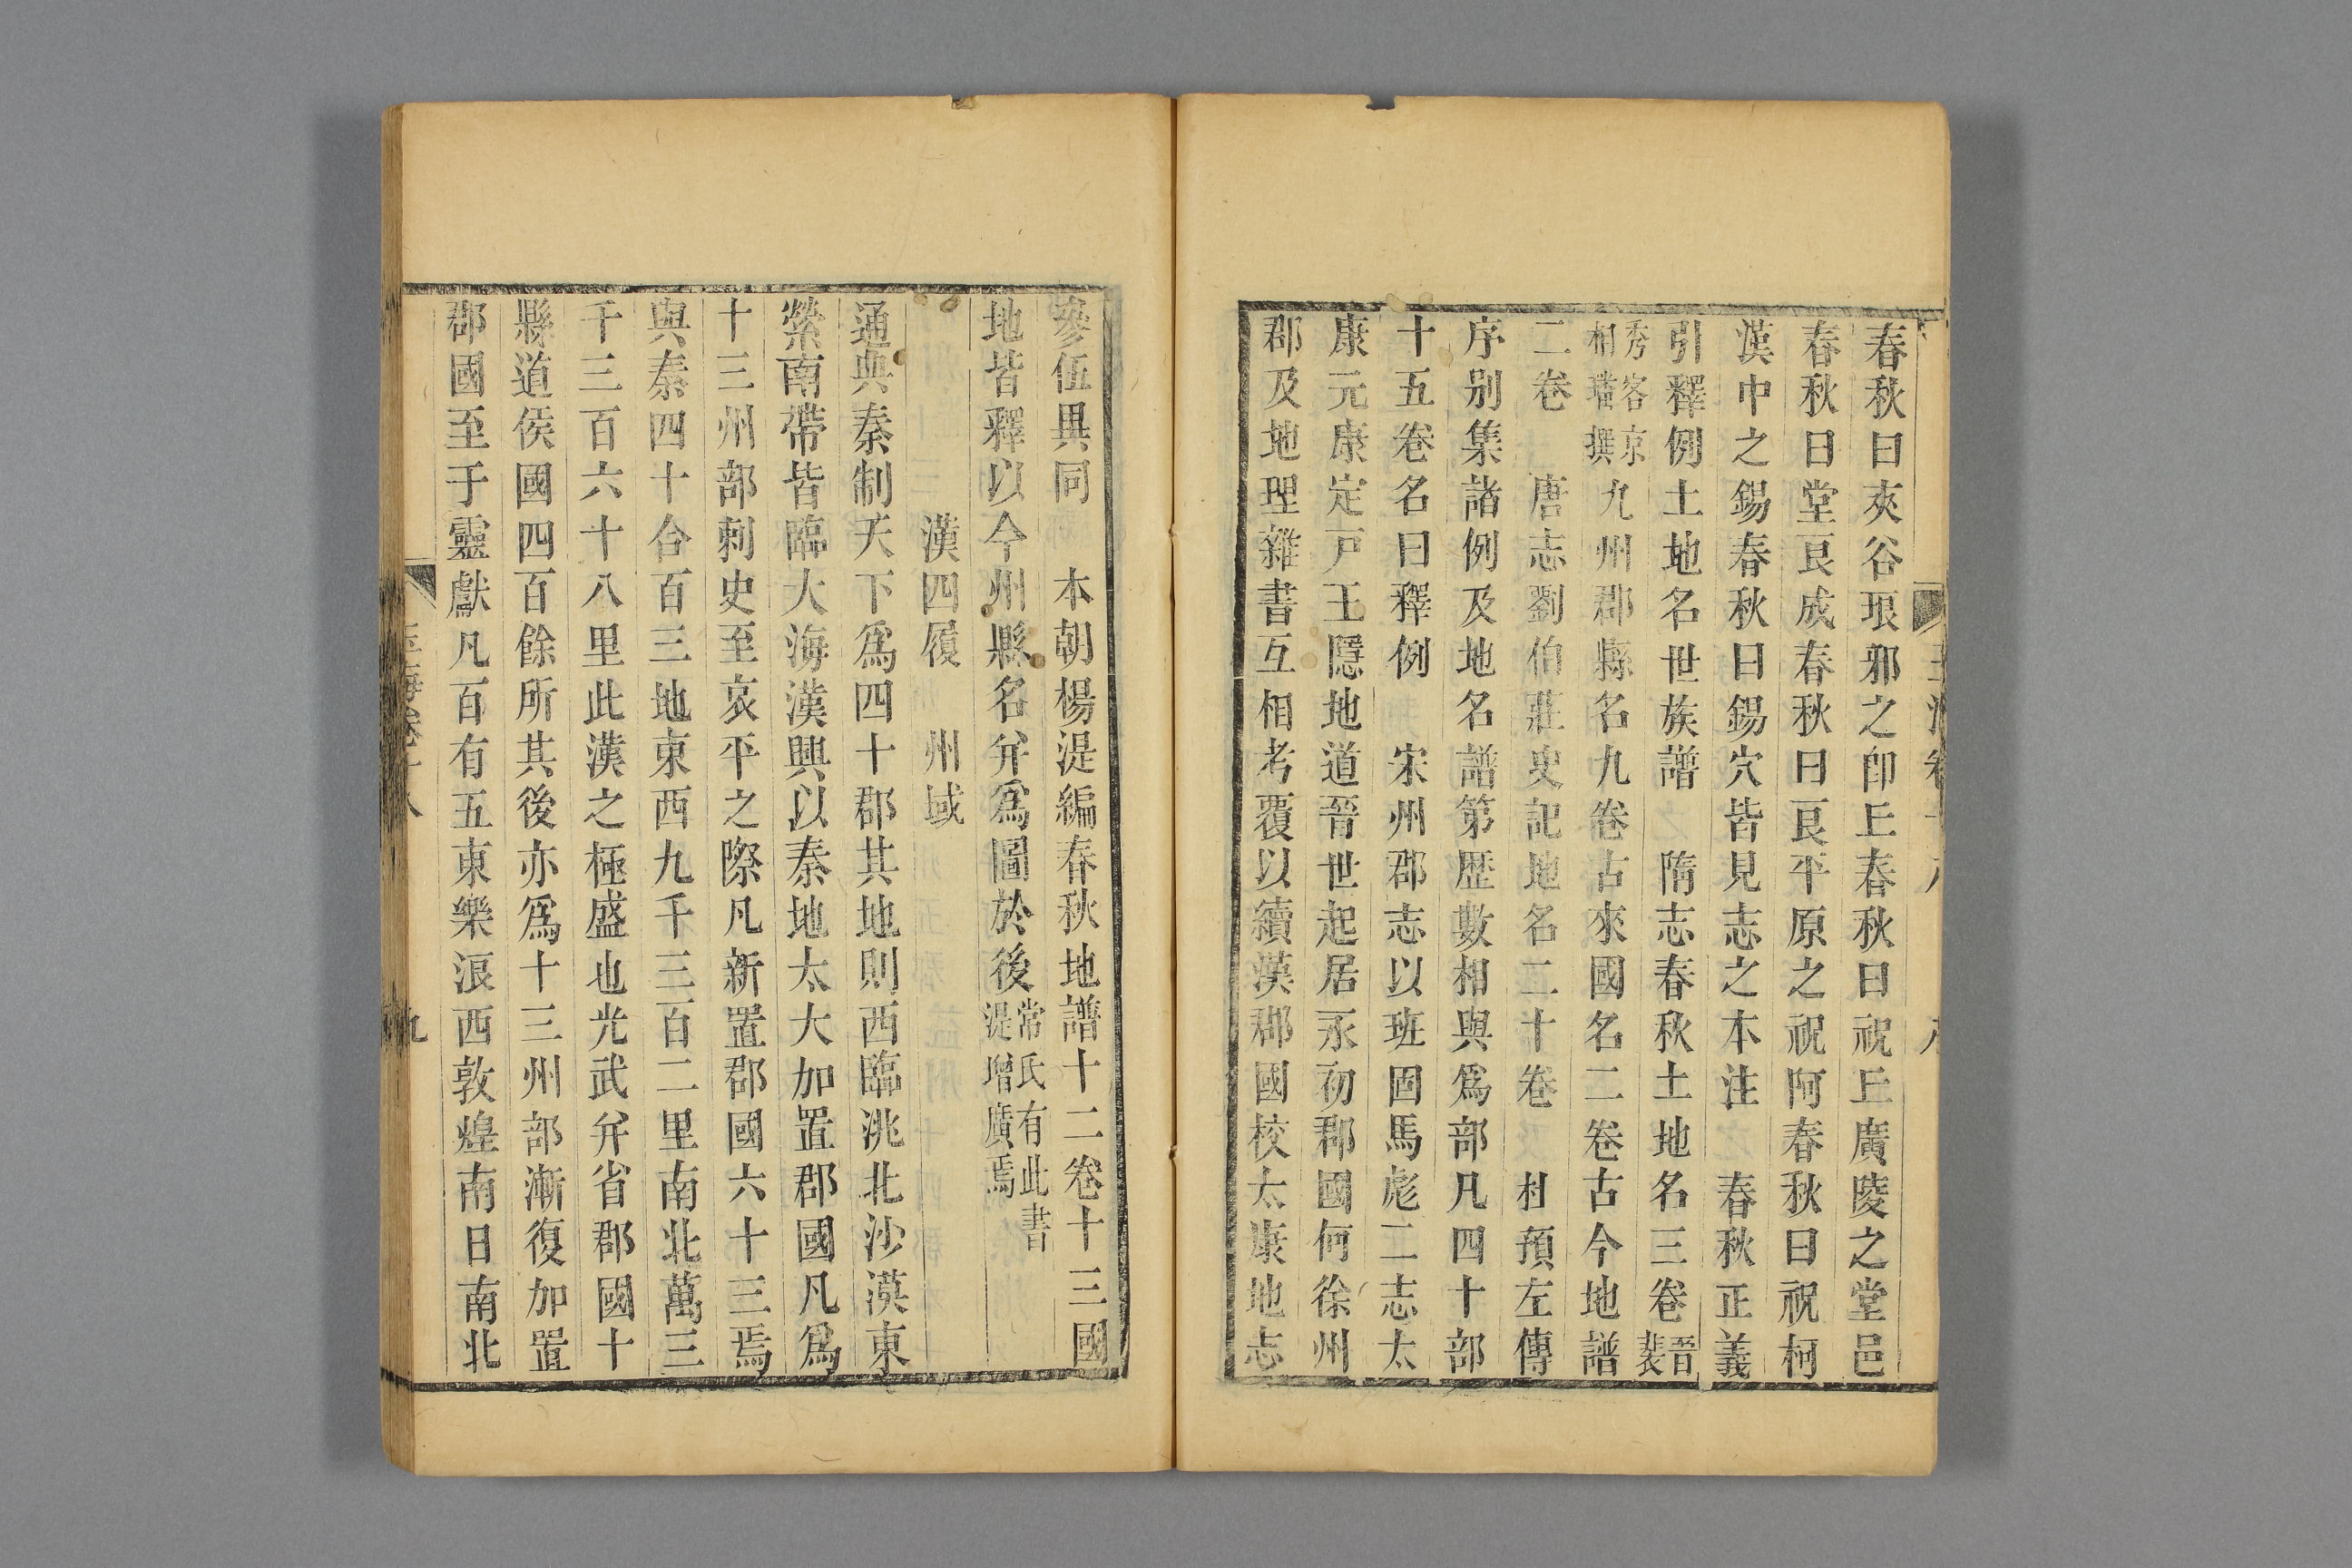 春秋曰夾谷琅邪之卽丘春秋曰祝丘廣陵之堂邑
春秋曰堂艮成春秋曰艮平原之祝阿春秋曰祝柯
漢中之錫春秋曰錫穴皆見志之本注 春秋正義
引釋例土地名世族譜 隋志春秋土地名三卷晉裴
秀客京相璠撰 九州郡縣名九卷古來國名二卷古今地譜
二卷 唐志劉伯莊史記地名二十卷 杜預左傳
序别集諸例及地名譜第歷數相與爲部凡四十部
十五卷名曰釋例 宋州郡志以班固馬彪二志太
康元康定戸王隱地道晉世起居永初郡國何徐州
郡及地理雜書互相考覆以續漢郡國校太康地志
參伍異同 本朝楊湜編春秋地譜十二卷十三國
地皆釋以今州縣名并爲圖於後常氏有此書湜增廣焉
漢四履 州域
通典秦制天下爲四十郡其地則西臨洮北沙漠東
縈南帶皆臨大海漢興以秦地太大加置郡國凡爲
十三州部刺史至哀平之際凡新置郡國六十三焉
與秦四十合百三地東西九千三百二里南北萬三
千三百六十八里此漢之極盛也光武并省郡國十
縣道侯國四百餘所其後亦爲十三州部漸復加置
郡國至于靈獻凡百有五東樂浪西敦煌南日南北
玉海卷十八 九